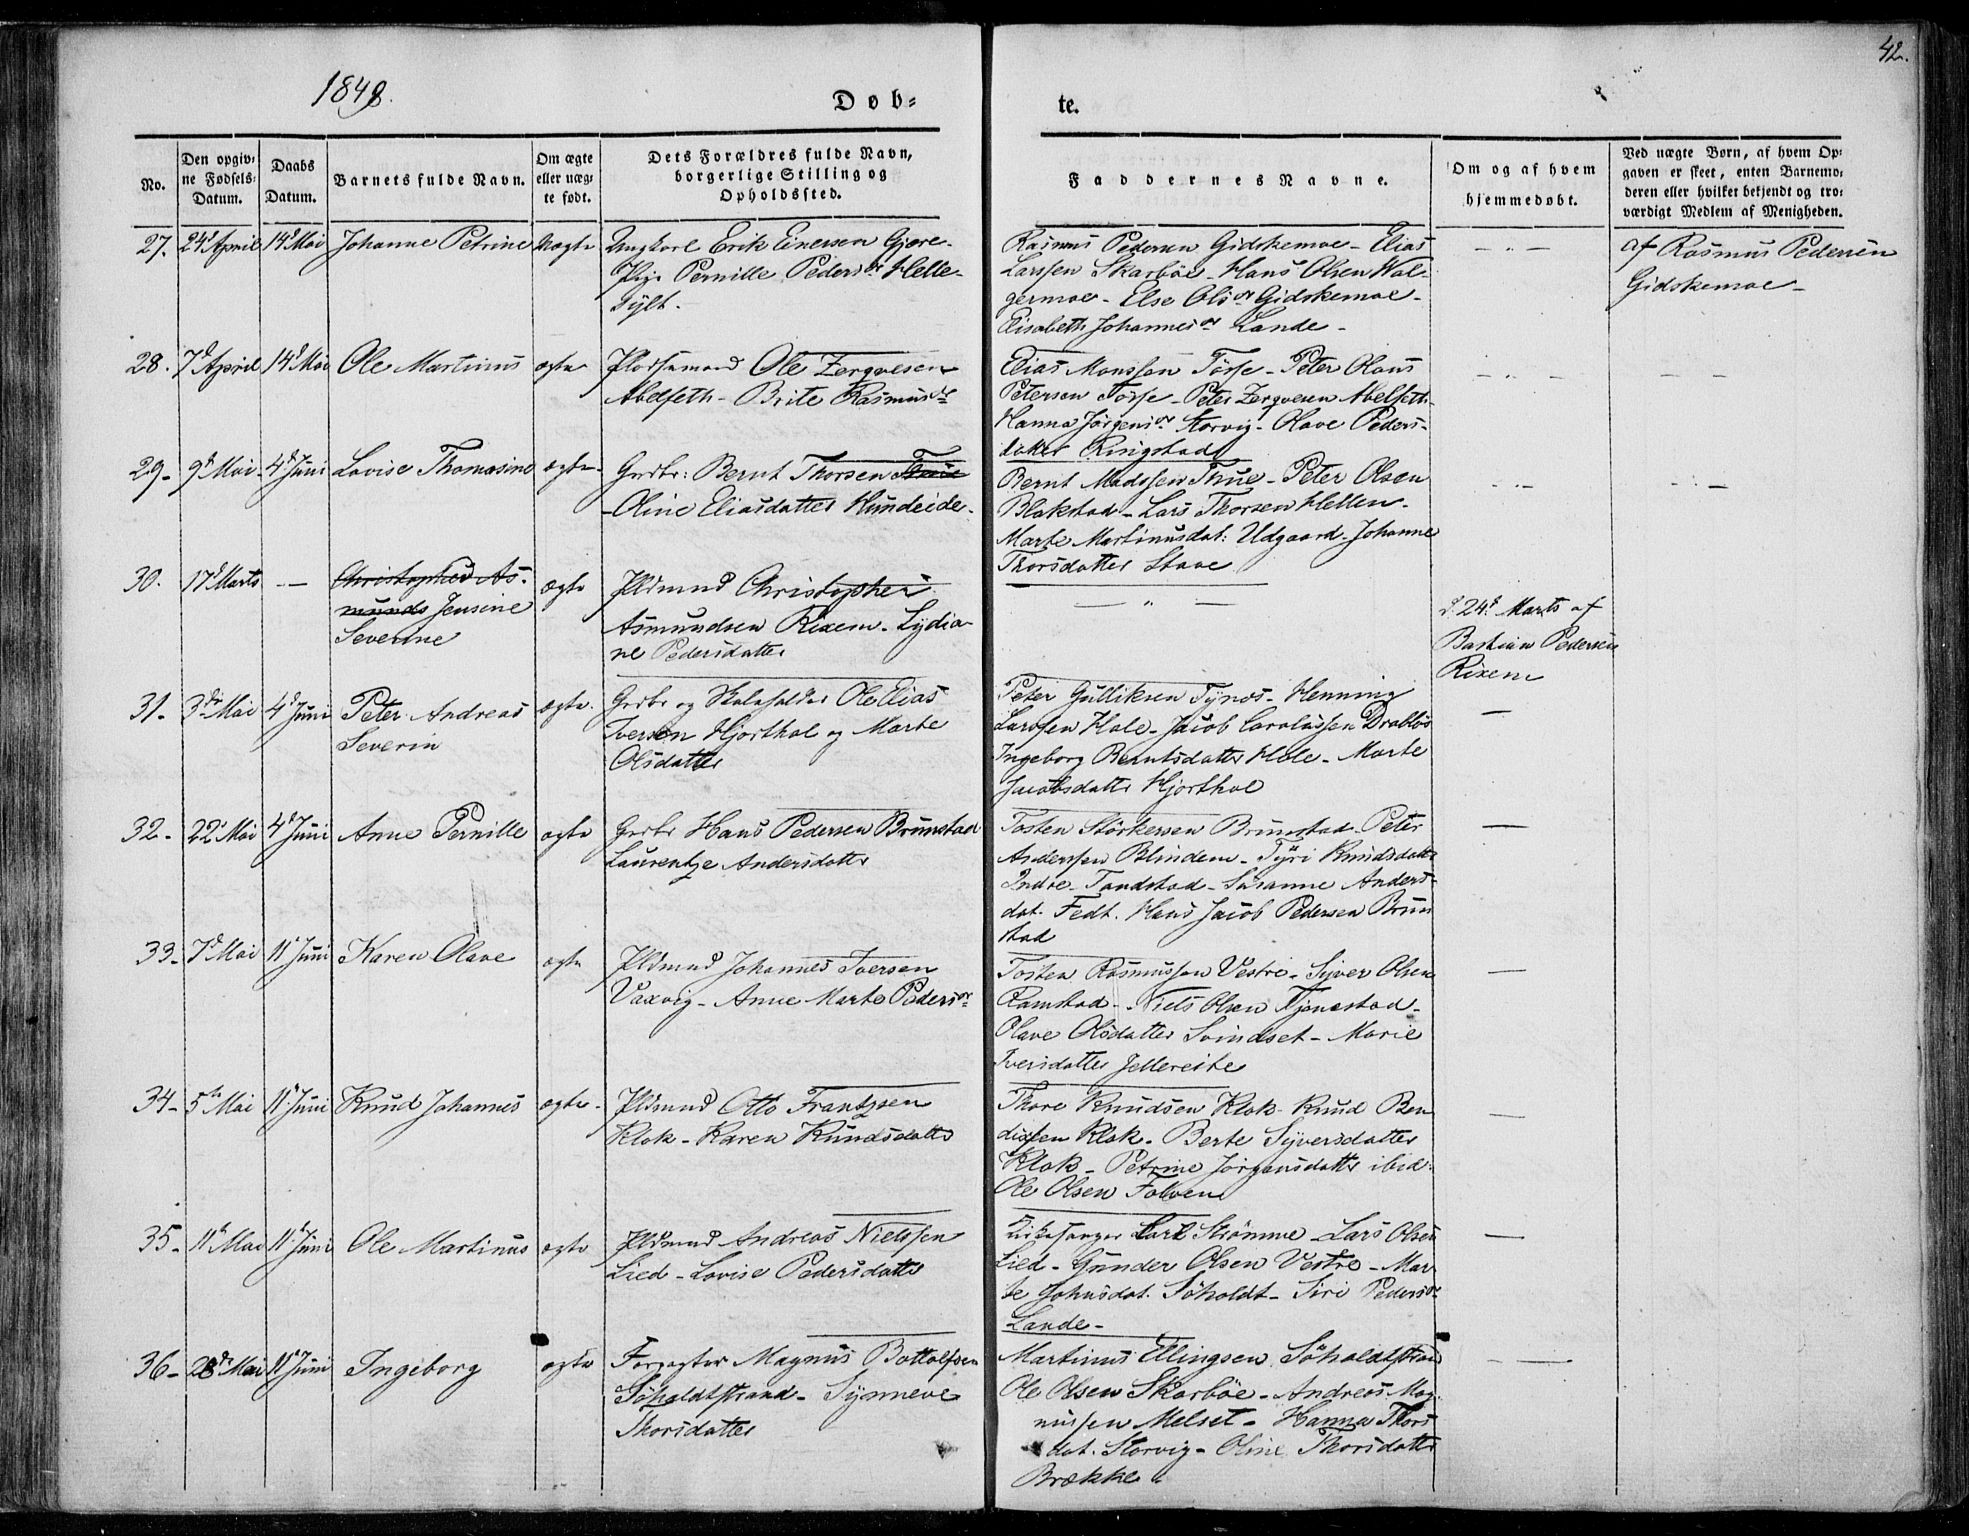 42.
1848.
Døb-
te.
No.
Den opgiv-
ne Fødsels-
Datum.
Daabs
Datum.
Barnets fulde Navn.
Om ægte
eller uæg-
te født.
Dets Forældres fulde Navn,
borgerlige Stilling og
Opholdssted.
Faddernes Navne.
Om og af hvem
hjemmedøbt.
Ved uægte Børn, af hvem Op-
gaven er skeet, enten Barnemo-
deren eller hvilket bekjendt og tro-
værdigt Medlem af Menigheden.
27. 24d April 14d Mai Johanne Petrine uægte
Ungkarl Erik Einersen Gjære-
Pige Pernille Pedersdr Helle-
sylt.
Rasmus Pedersen Gidskemoe - Elias
Larssen Skarbøe - Hans Olsen Wal-
germoe - Else Olsdr Gidskemoe -
Elisabeth Johannesdr Lande -
af Rasmus Pedersen
Gidskemoe -
28. 7d April 14d Mai Ole Martinus ægte
Pladsemand Ole Zergvesen
Abelseth - Brite Rasmusdr
Elias Monssen Tørse - Peter Olaus
Petersen Torse - Peter Zergvesen Abelseth -
Hanna Jørgensdr Storvig - Olave Peders-
datter Ringstad
29 - 9d Mai - 4d Juni Lovise Thomasine ægte -
Grdbr: Bernt Thorsen Thue
- Oline Eliasdatter Hundeide -
Bernt Madssen Thue - Peter Olsen
Blakstad - Lars Thorsen Hellen -
Marte Martinusdat: Udgaard - Johanne
Thorsdatter Stave
30. 17d Marts - Christopher As-
munds Jensine
Severine
ægte
Pldmnd Christopher
Asmundsen Rixem - Lydia-
ne Pedersdatter
d. 24d Marts af
Bastian Pedersen
Rixem
31 - 3die Mai 4d Juni Peter Andreas
Severin
ægte.
Grdbr og Skoleholder Ole Elias
Iversen Hjorthol og Marte
Olsdatter
Peter Gulliksen Tynes - Henning
Larssen Hole - Jacob Carolussen Drabløs
Ingeborg Berntsdatter Hole - Marte
Jacobsdatter Hjorthol
32 - 22d Mai 4d Juni Anne Pernille ægte
Grdbr Hans Pedersen Brunstad
Laurentze Andersdatter
Tosten Størkersen Brunstad - Peter
Anderssen Blindem - Tyri Knudsdatter
Indre - Tandstad - Susanne Anders-
dat. Fedt. Hans Jacob Pedersen Brun
stad
33 - 7d Mai 11d Juni Karen Olave ægte
Pldmnd Johannes Iversen
Vaxvig - Anne Marte Pedersdr
Tosten Rasmussen Vestre - Syver Olsen
Ramstad - Niels Olsen Tjenestad -
Olave Olsdatter Svindset - Marie
Iversdatter Jellereite
34 - 5te Mai 11d Juni Knud Johannes ægte -
Pldmnd Otto Frantzsen
Klok - Karen Knudsdatter
Thore Knudsen Klok - Knud Ben
dixsen Klok - Berte Syversdatter
Klok - Petrine Jørgensdatter ibid.
Ole Olsen Folven
35 - 11te Mai 11d Juni Ole Martinus ægte
Pldmnd Andreas Nielssen
Lied - Lovise Pedersdatter
Kirkesanger Carl Strømme - Lars Olsen
Lied - Gunder Olsen Vestre - Mar
te Johnsdat. Søholdt - Siri Pedersdr
Lande -
36 - 28de Mai 11d Juni Ingeborg ægte
Forpagter Magnus Bottolfsen
Søholdtstrand - Synneve
Thorsdatter
Martinus Ellingsen Søholdtstrand
Ole Olsen Skarbøe - Andreas Mag-
nussen Melset - Hanna Thors
dat. Storvig - Oline Thorsdatter
Brække